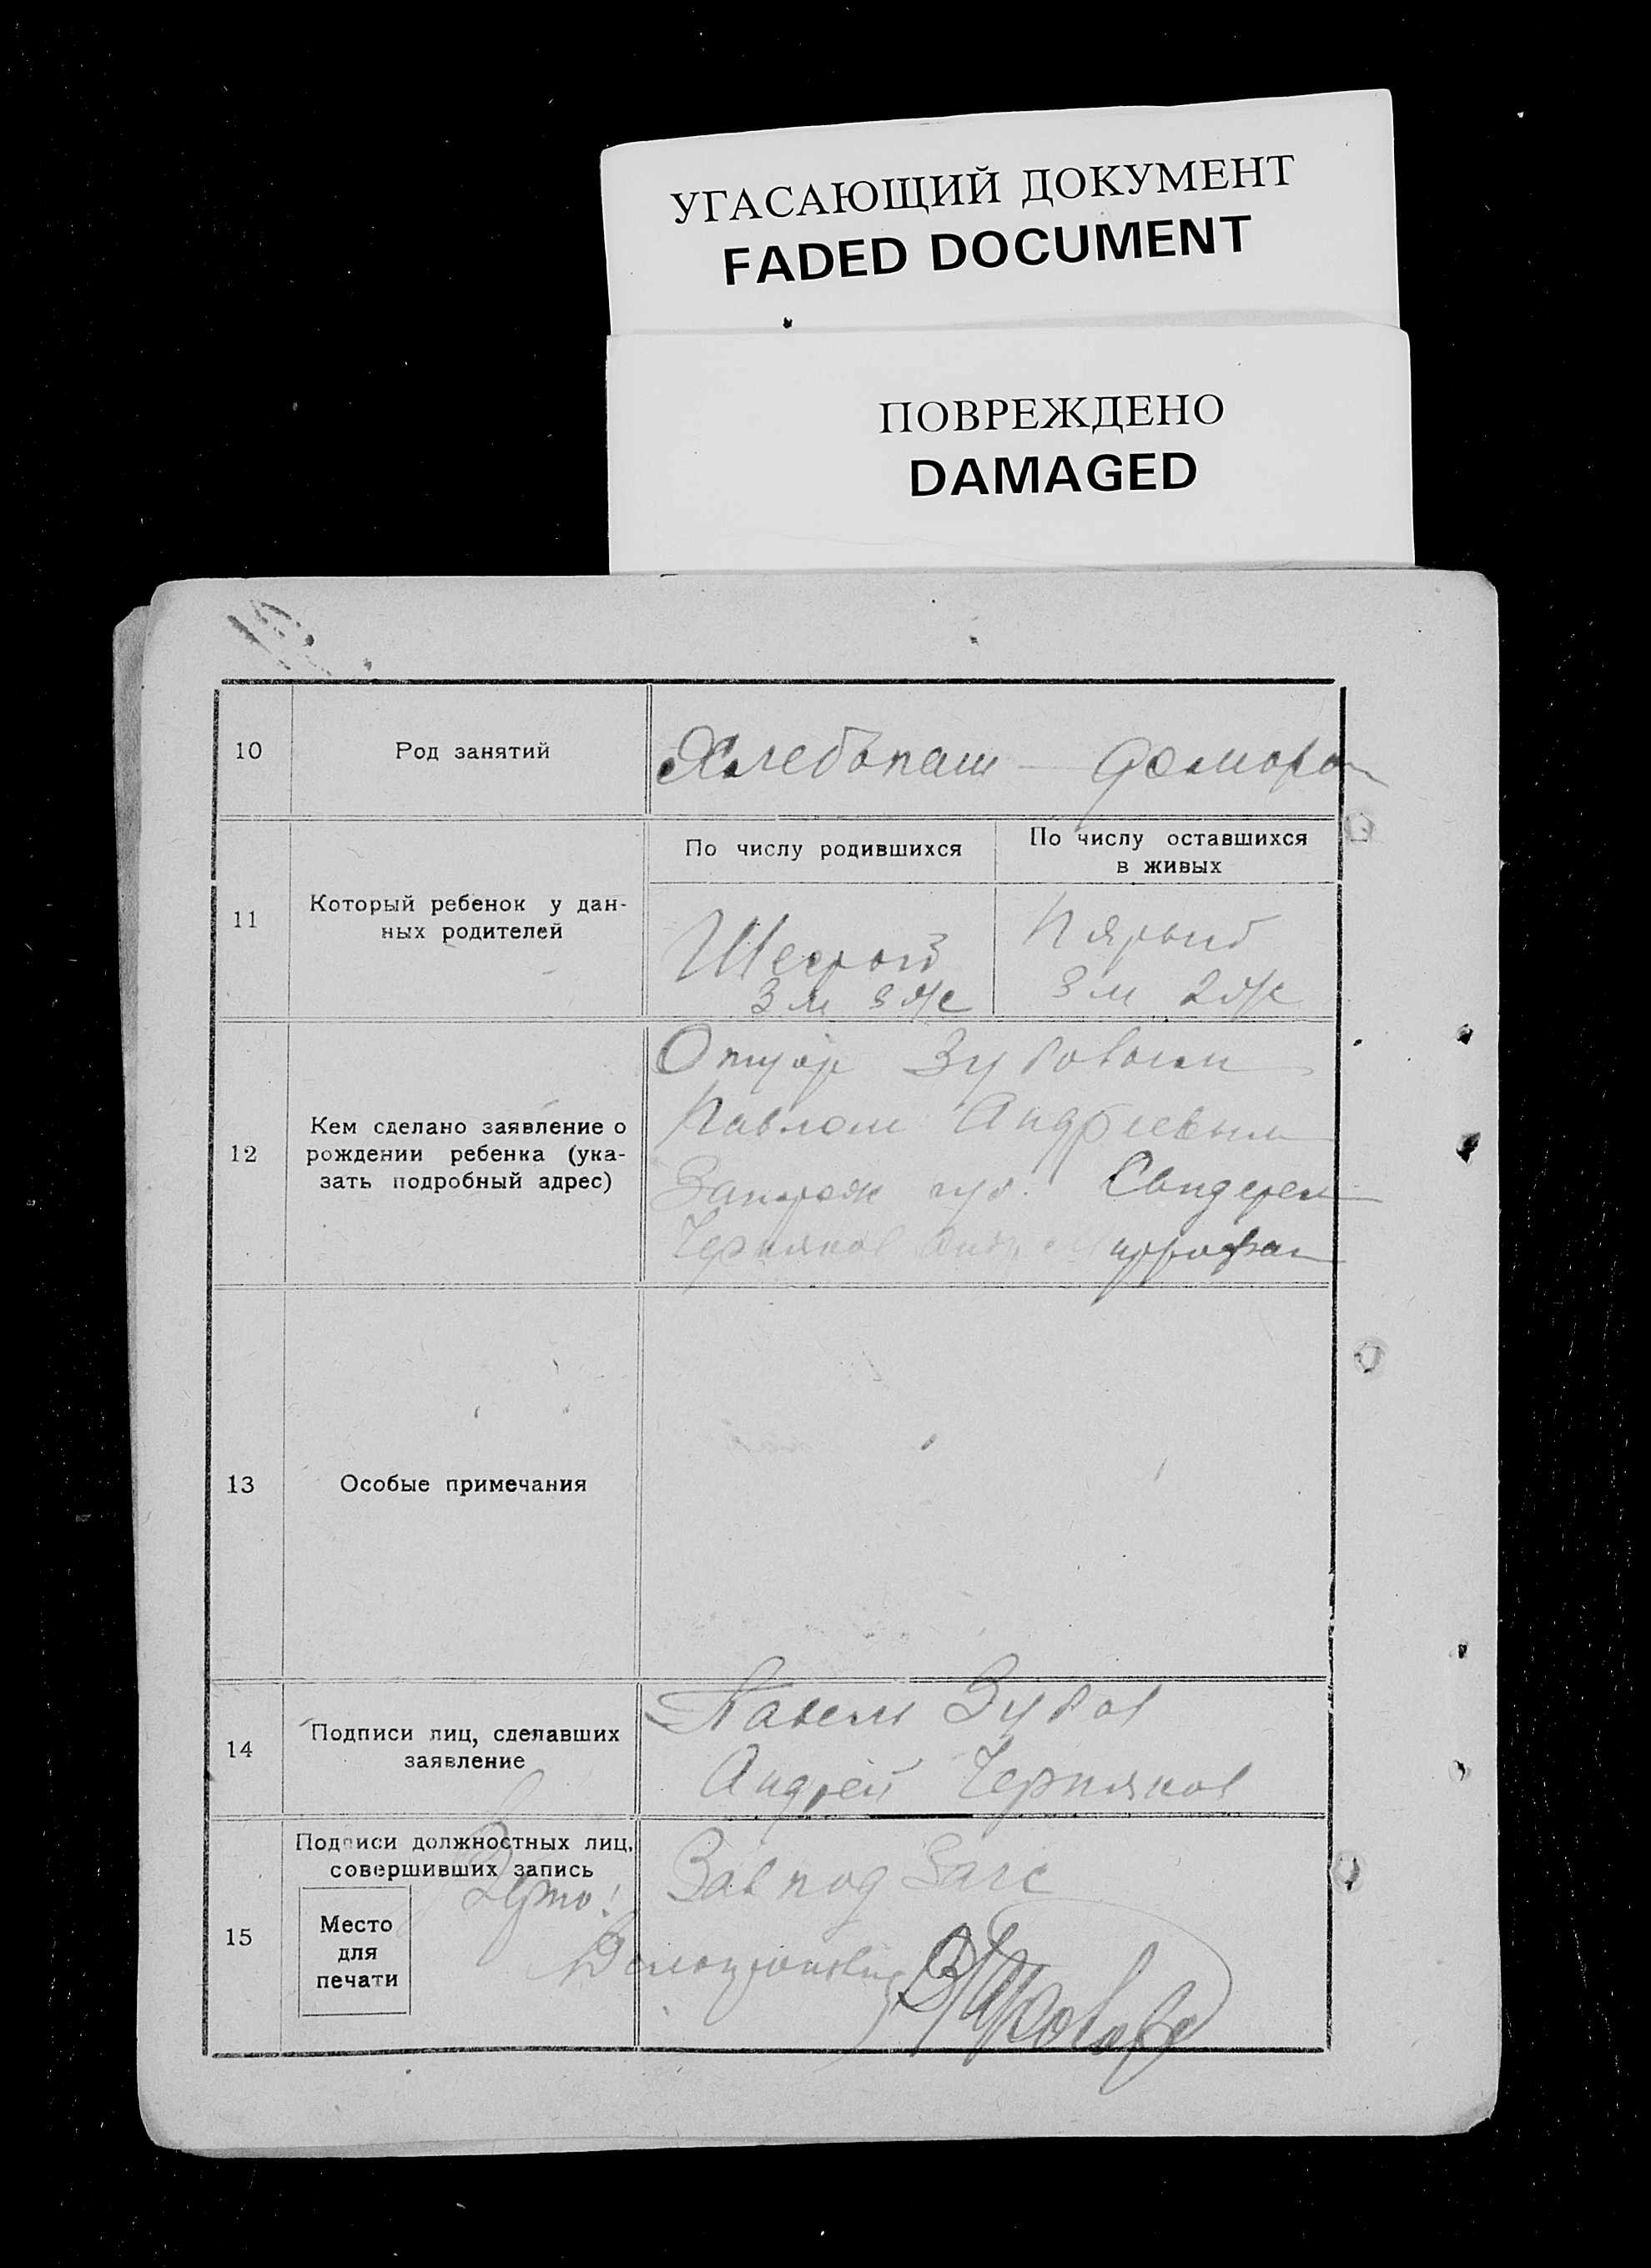 УГАСАЮЩИЙ ДОКУМЕНТ
FADED DOCUMENT
ПОВРЕЖДЕНО
DAMAGED
10
Род занятий
Хлебопаш —
11
Который ребенок у дан-
ных родителей
По числу родившихся
По числу оставшихся
в живых
Шестой
3 м 3 ж
Пятый
3 м 2 ж
12
Кем сделано заявление о
рождении ребенка (ука-
зать подробный адрес)
Отцом Зубовым
Павлом Андреевым
губ.
Черняков
13
Особые примечания
14
Подписи лиц, сделавших
заявление
Павел Зубов
Андрей Черняков
15
Подписи должностных лиц,
совершивших запись
Место
для
печати
Зав под Загс